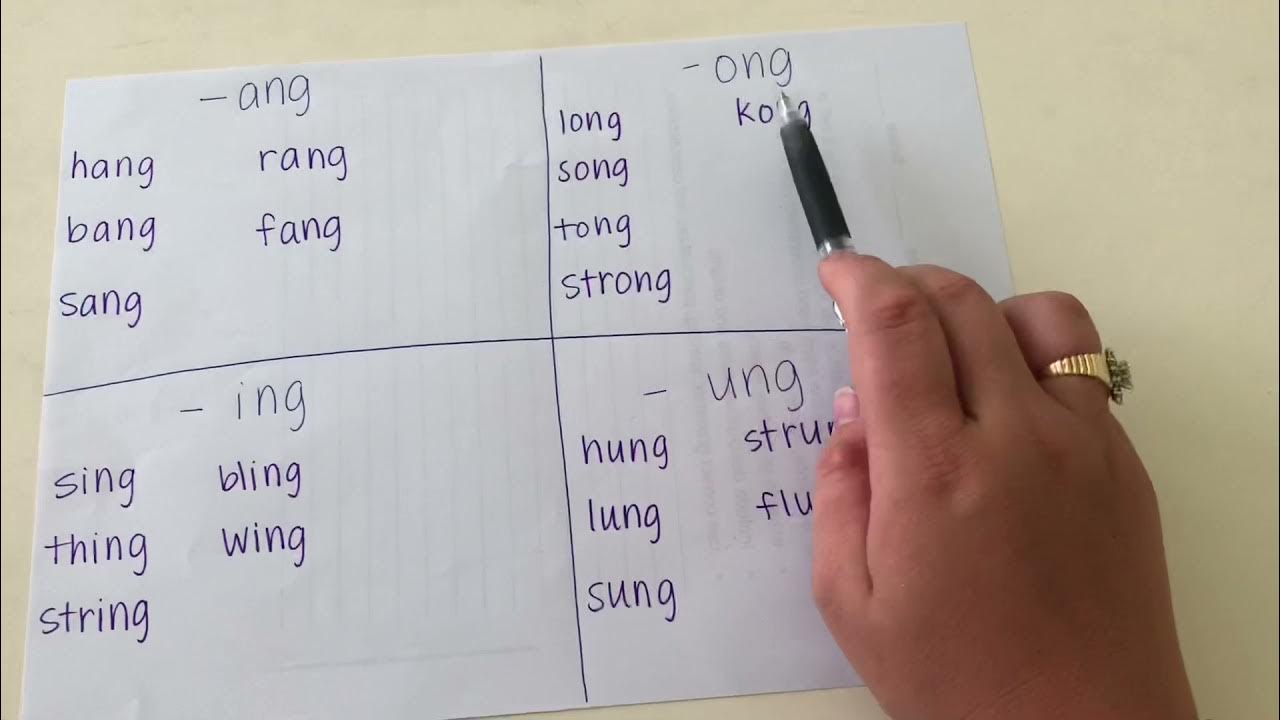 -ang
hang rang
bang fang
sang
-ong
long kong
song
tong
strong
- ing
sing bling
thing wing
string
- ung
hung
lung
sung